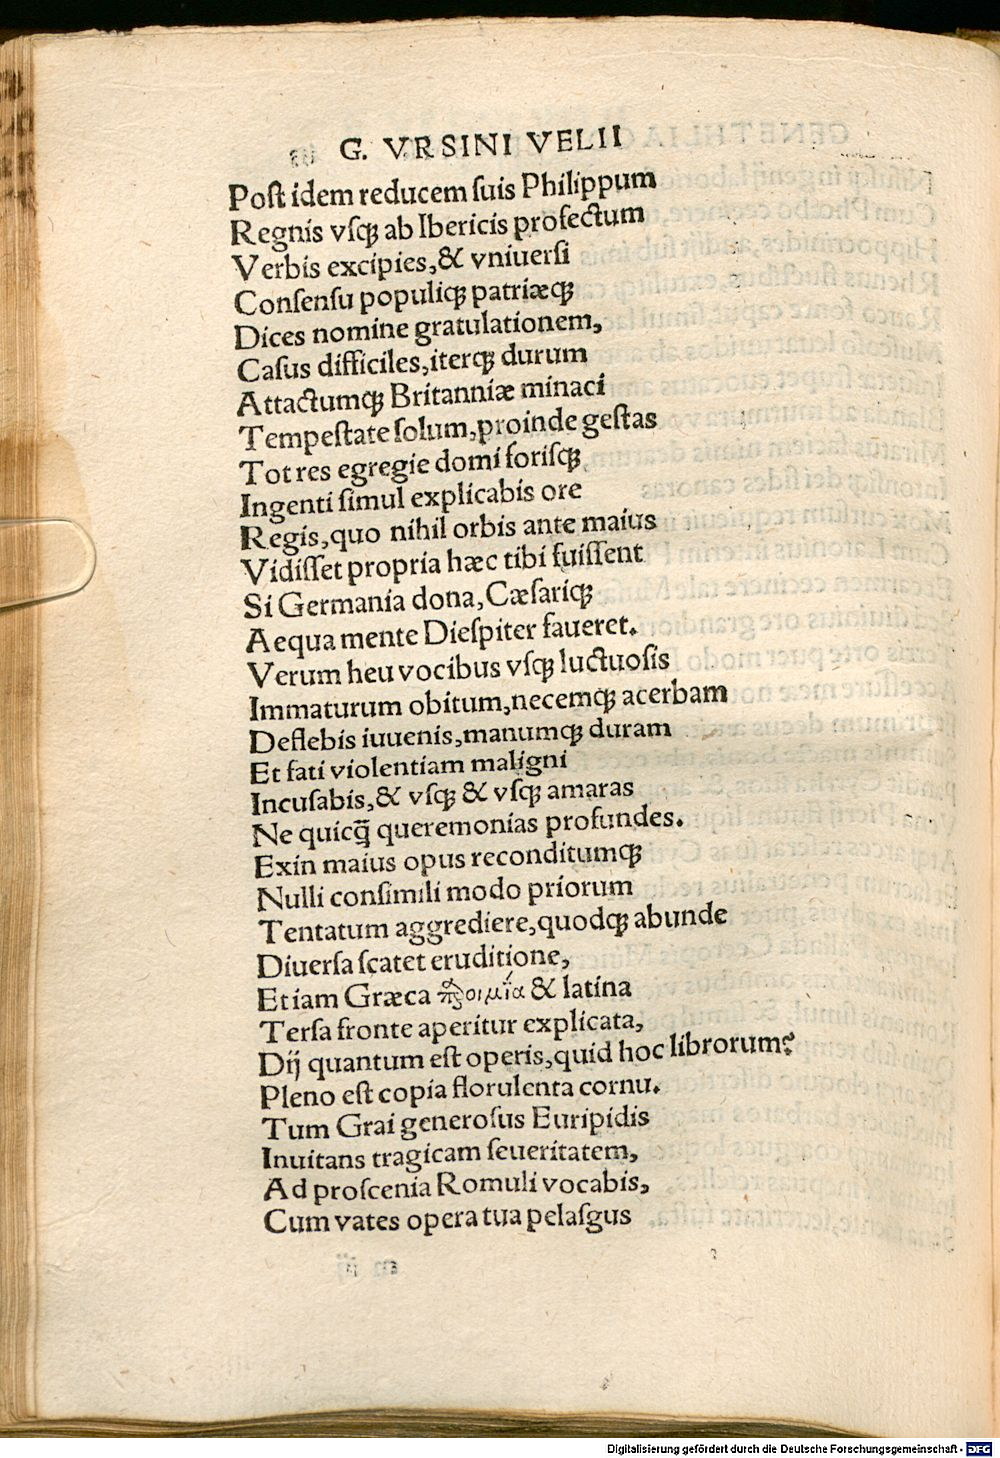 G. VRSINI VELII
Poſt idem reducem ſuis Philippum
Regnis vſqꝫ ab Ibericis profectum
Verbis excipies,& vniuerſi
Conſenſu populiqꝫ patriæqꝫ
Dices nomine gratulationem,
Caſus difficiles,iterqꝫ durum
Attactumqꝫ Britanniæ minaci
Tempeſtate ſolum,proinde geſtas
Tot res egregie domi foriſqꝫ
Ingenti ſimul explicabis ore
Regis,quo nihil orbis ante maius
Vidiſſet propria hæc tibi fuiſſent
Si Germania dona,Cæſariqꝫ
Aequa mente Dieſpiter faueret.
Verum heu vocibus vſqꝫ luctuoſis
Immaturum obitum,necemqꝫ acerbam
Deflebis iuuenis,manumqꝫ duram
Et fati violentiam maligni
Incuſabis,& vſqꝫ & vſqꝫ amaras
Ne quicq̄ queremonias profundes.
Exin maius opus reconditumqꝫ
Nulli conſimili modo priorum
Tentatum aggrediere,quodqꝫ abunde
Diuerſa ſcatet eruditione,
Etiam Græca προιμία & latina
Terſa fronte aperitur explicata,
Dij quantum eſt operis,quid hoc librorum?
Pleno eſt copia florulenta cornu.
Tum Grai generoſus Euripidis
Inuitans tragicam ſeueritatem,
Ad proſcenia Romuli vocabis,
Cum vates opera tua pelaſgus
Digitalisierung gefördert durch die Deutsche Forschungsgemeinschaft - DFG